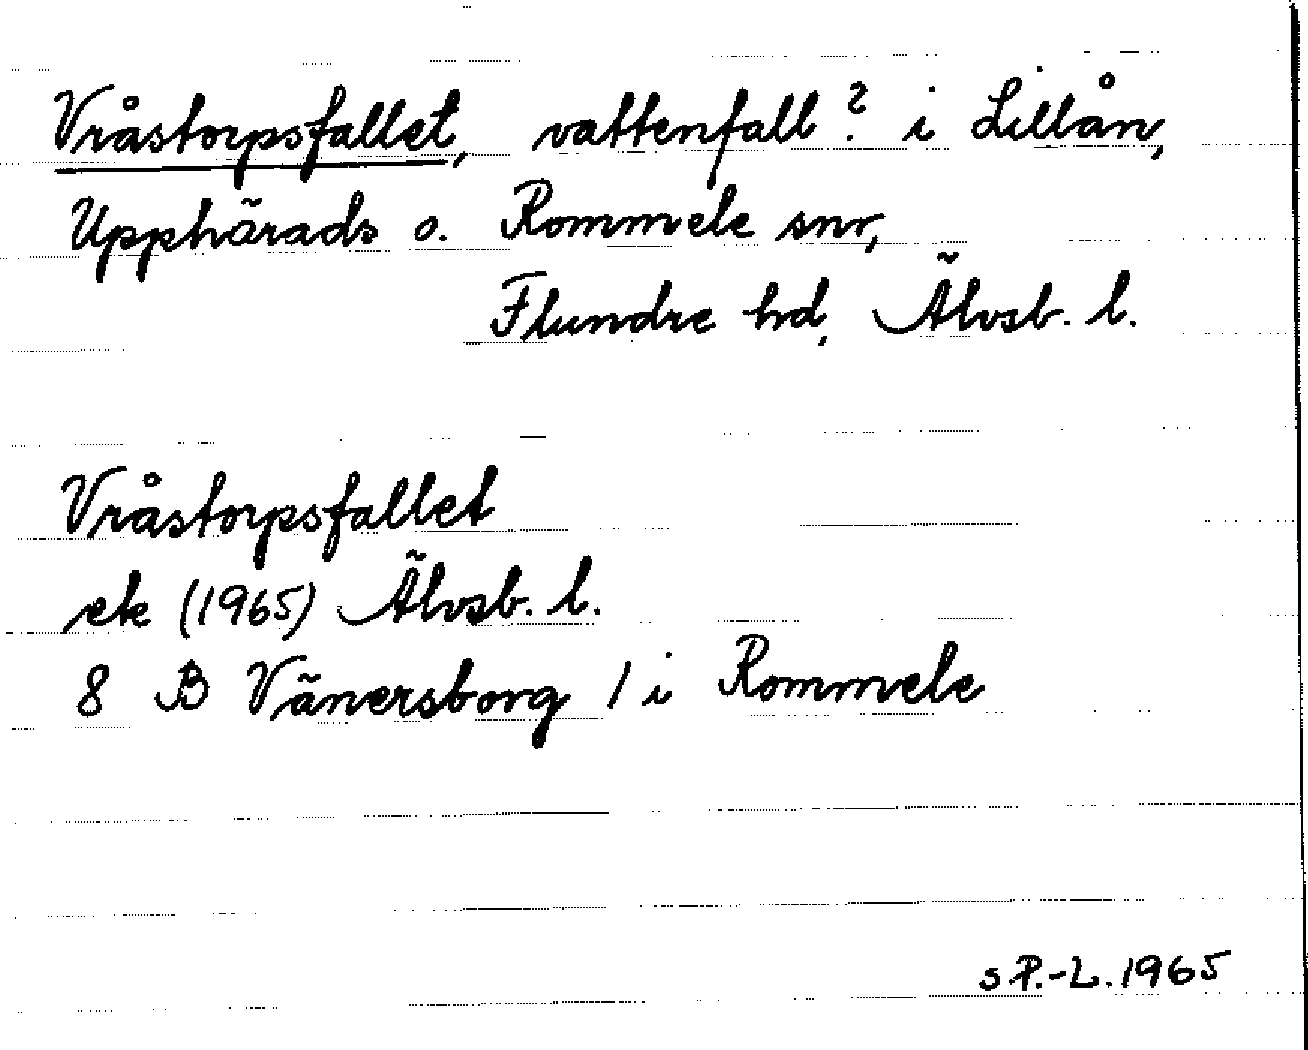 Vråstorpsfallet, vattenfall? i Lillån,
Upphärads o. Rommele snr,
Flundre hd, Älvsb. l.
Vråstorpsfallet
ek (1965) Älvsb. l.
8 B Vänersborg / i Rommele
S.P.-L. 1965